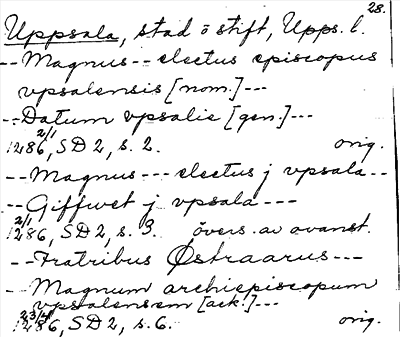 28.
Uppsala, stad o stift, Upps. l.
--Magnus--electus episcopus
vpsalensis [nom.]---
--Datum vpsalie [gen.]---
2/1
1286, SD 2, s. 2. orig.
--Magnus---electus j vpsala--
--Giffwet j vpsala---
2/1
1286, SD 2, s. 3. övers. av ovanst.
--Fratribus Østraarus---
--Magnum archiepiscopum
vpsalensem [ack.]---
23/4
1286, SD 2, s. 6. orig.